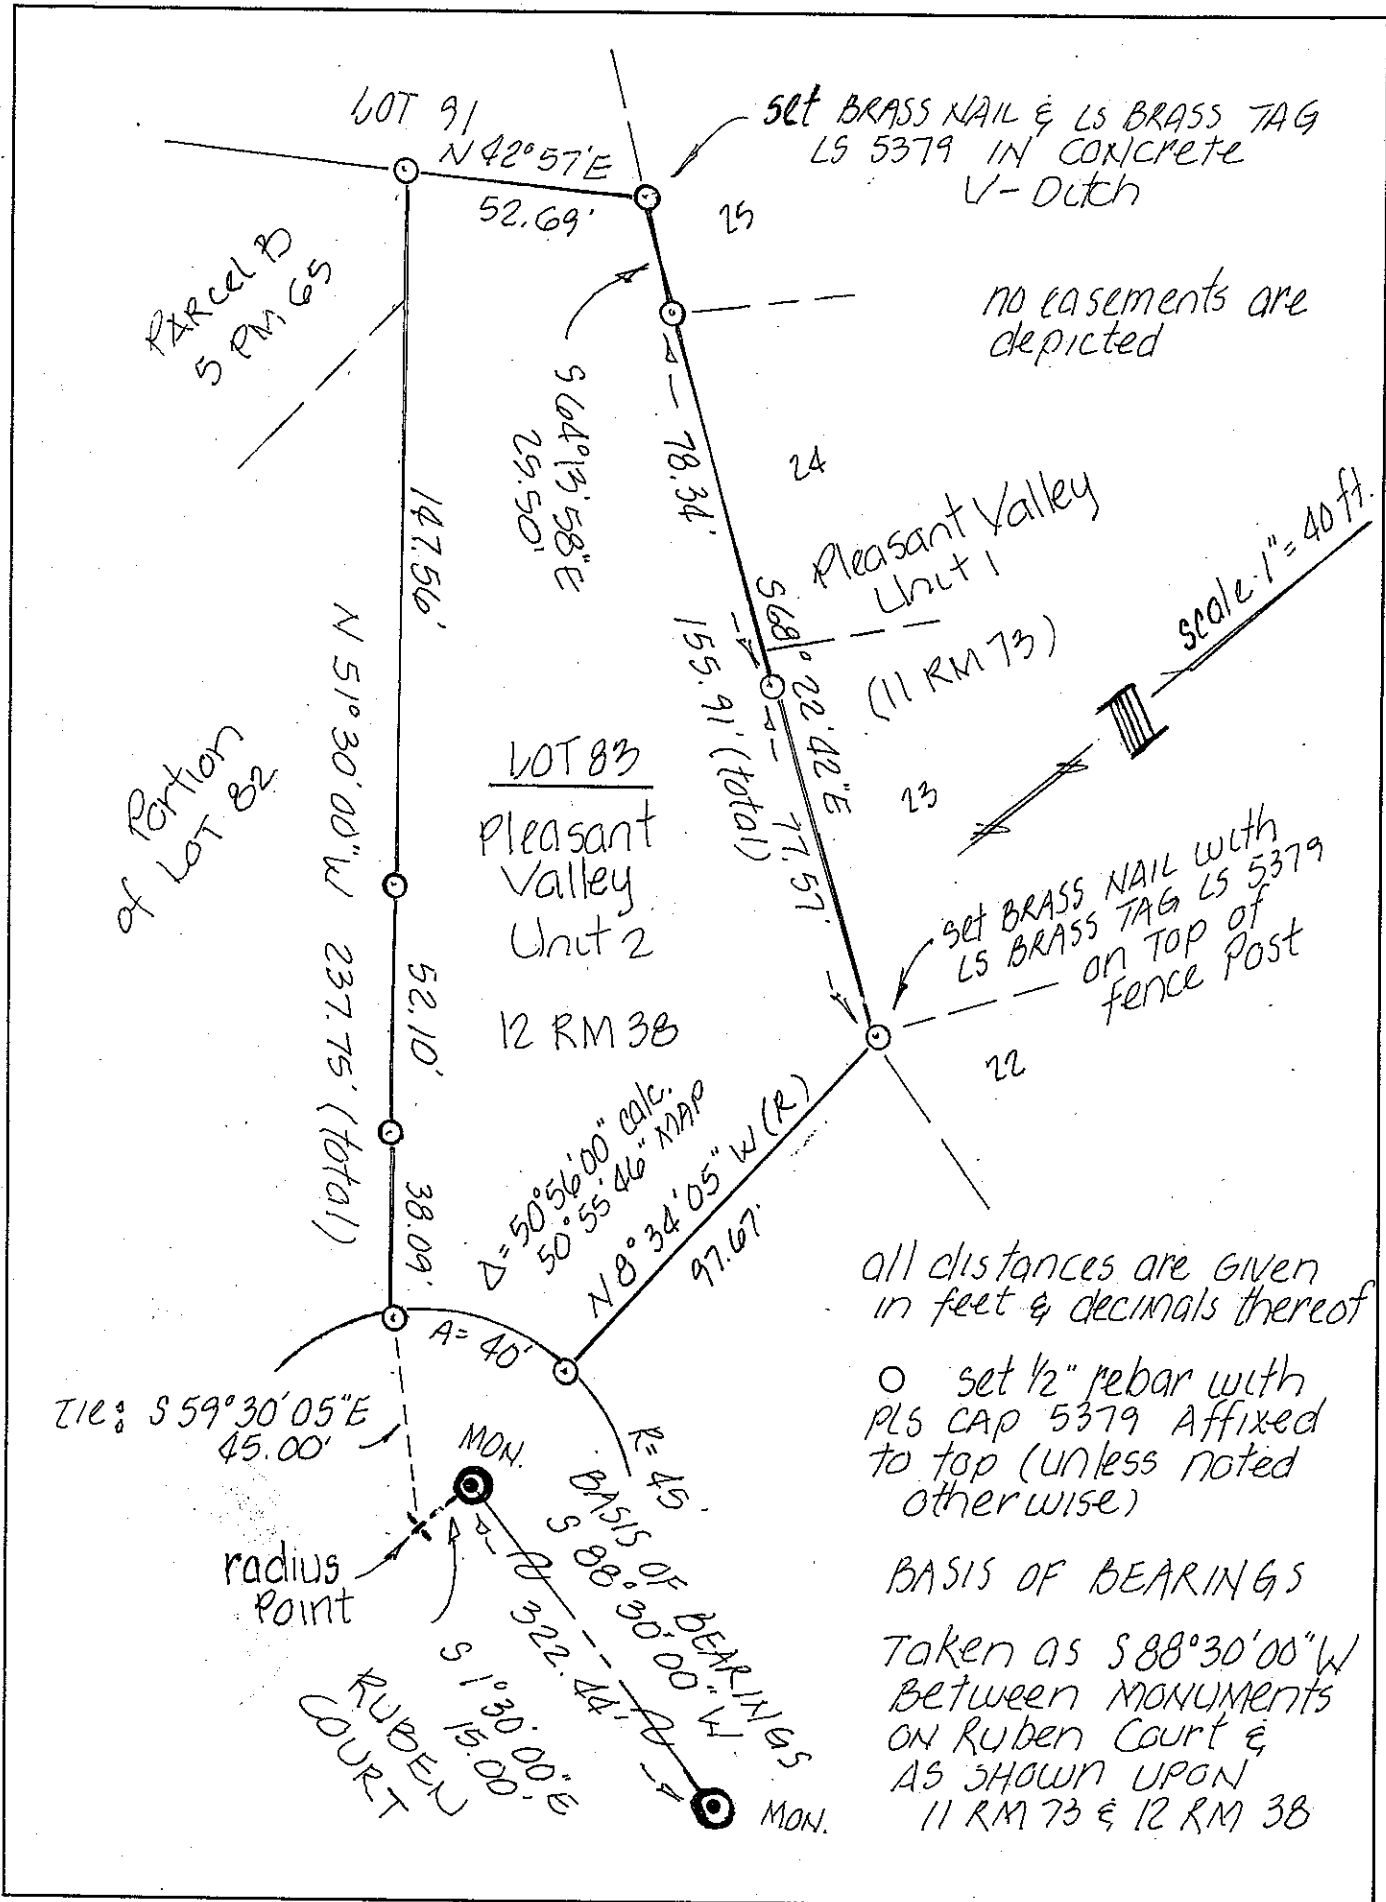 LOT 91
N 42°57'E
52.69'
set BRASS NAIL & LS BRASS TAG
LS 5379 IN CONCrete
V-Ditch
25
PARCEL B
5 PM 65
no easements are
depicted
S 64°13'58"E
25.50'
78.34'
24
Pleasant Valley
Unit 1
(11 RM 73)
scale 1" = 40 ft.
147.56'
S 68°22'42"E
155.91' (total)
77.57'
23
N 51°30'00"W 237.75' (total)
Portion
of LOT 82
LOT 83
Pleasant
Valley
Unit 2
12 RM 38
set BRASS NAIL with
LS BRASS TAG LS 5379
on TOP of
fence Post
52.10'
22
Δ=50°56'00" calc.
50°55'46" MAP
N 8°34'05" W (R)
97.67'
38.09'
all distances are GIVEN
in feet & decimals thereof
A= 40'
TIE: S 59°30'05"E
45.00'
R= 45'
O set 1/2" rebar with
PLS CAP 5379 Affixed
to top (unless noted
otherwise)
MON.
radius
Point
BASIS OF BEARINGS
S 88°30'00" W
322.44'
S 1°30'00"E
15.00'
RUBEN
COURT
MON.
BASIS OF BEARINGS
Taken as S 88°30'00"W
Between MONUMENTS
ON Ruben Court &
AS SHOWN UPON
11 RM 73 & 12 RM 38